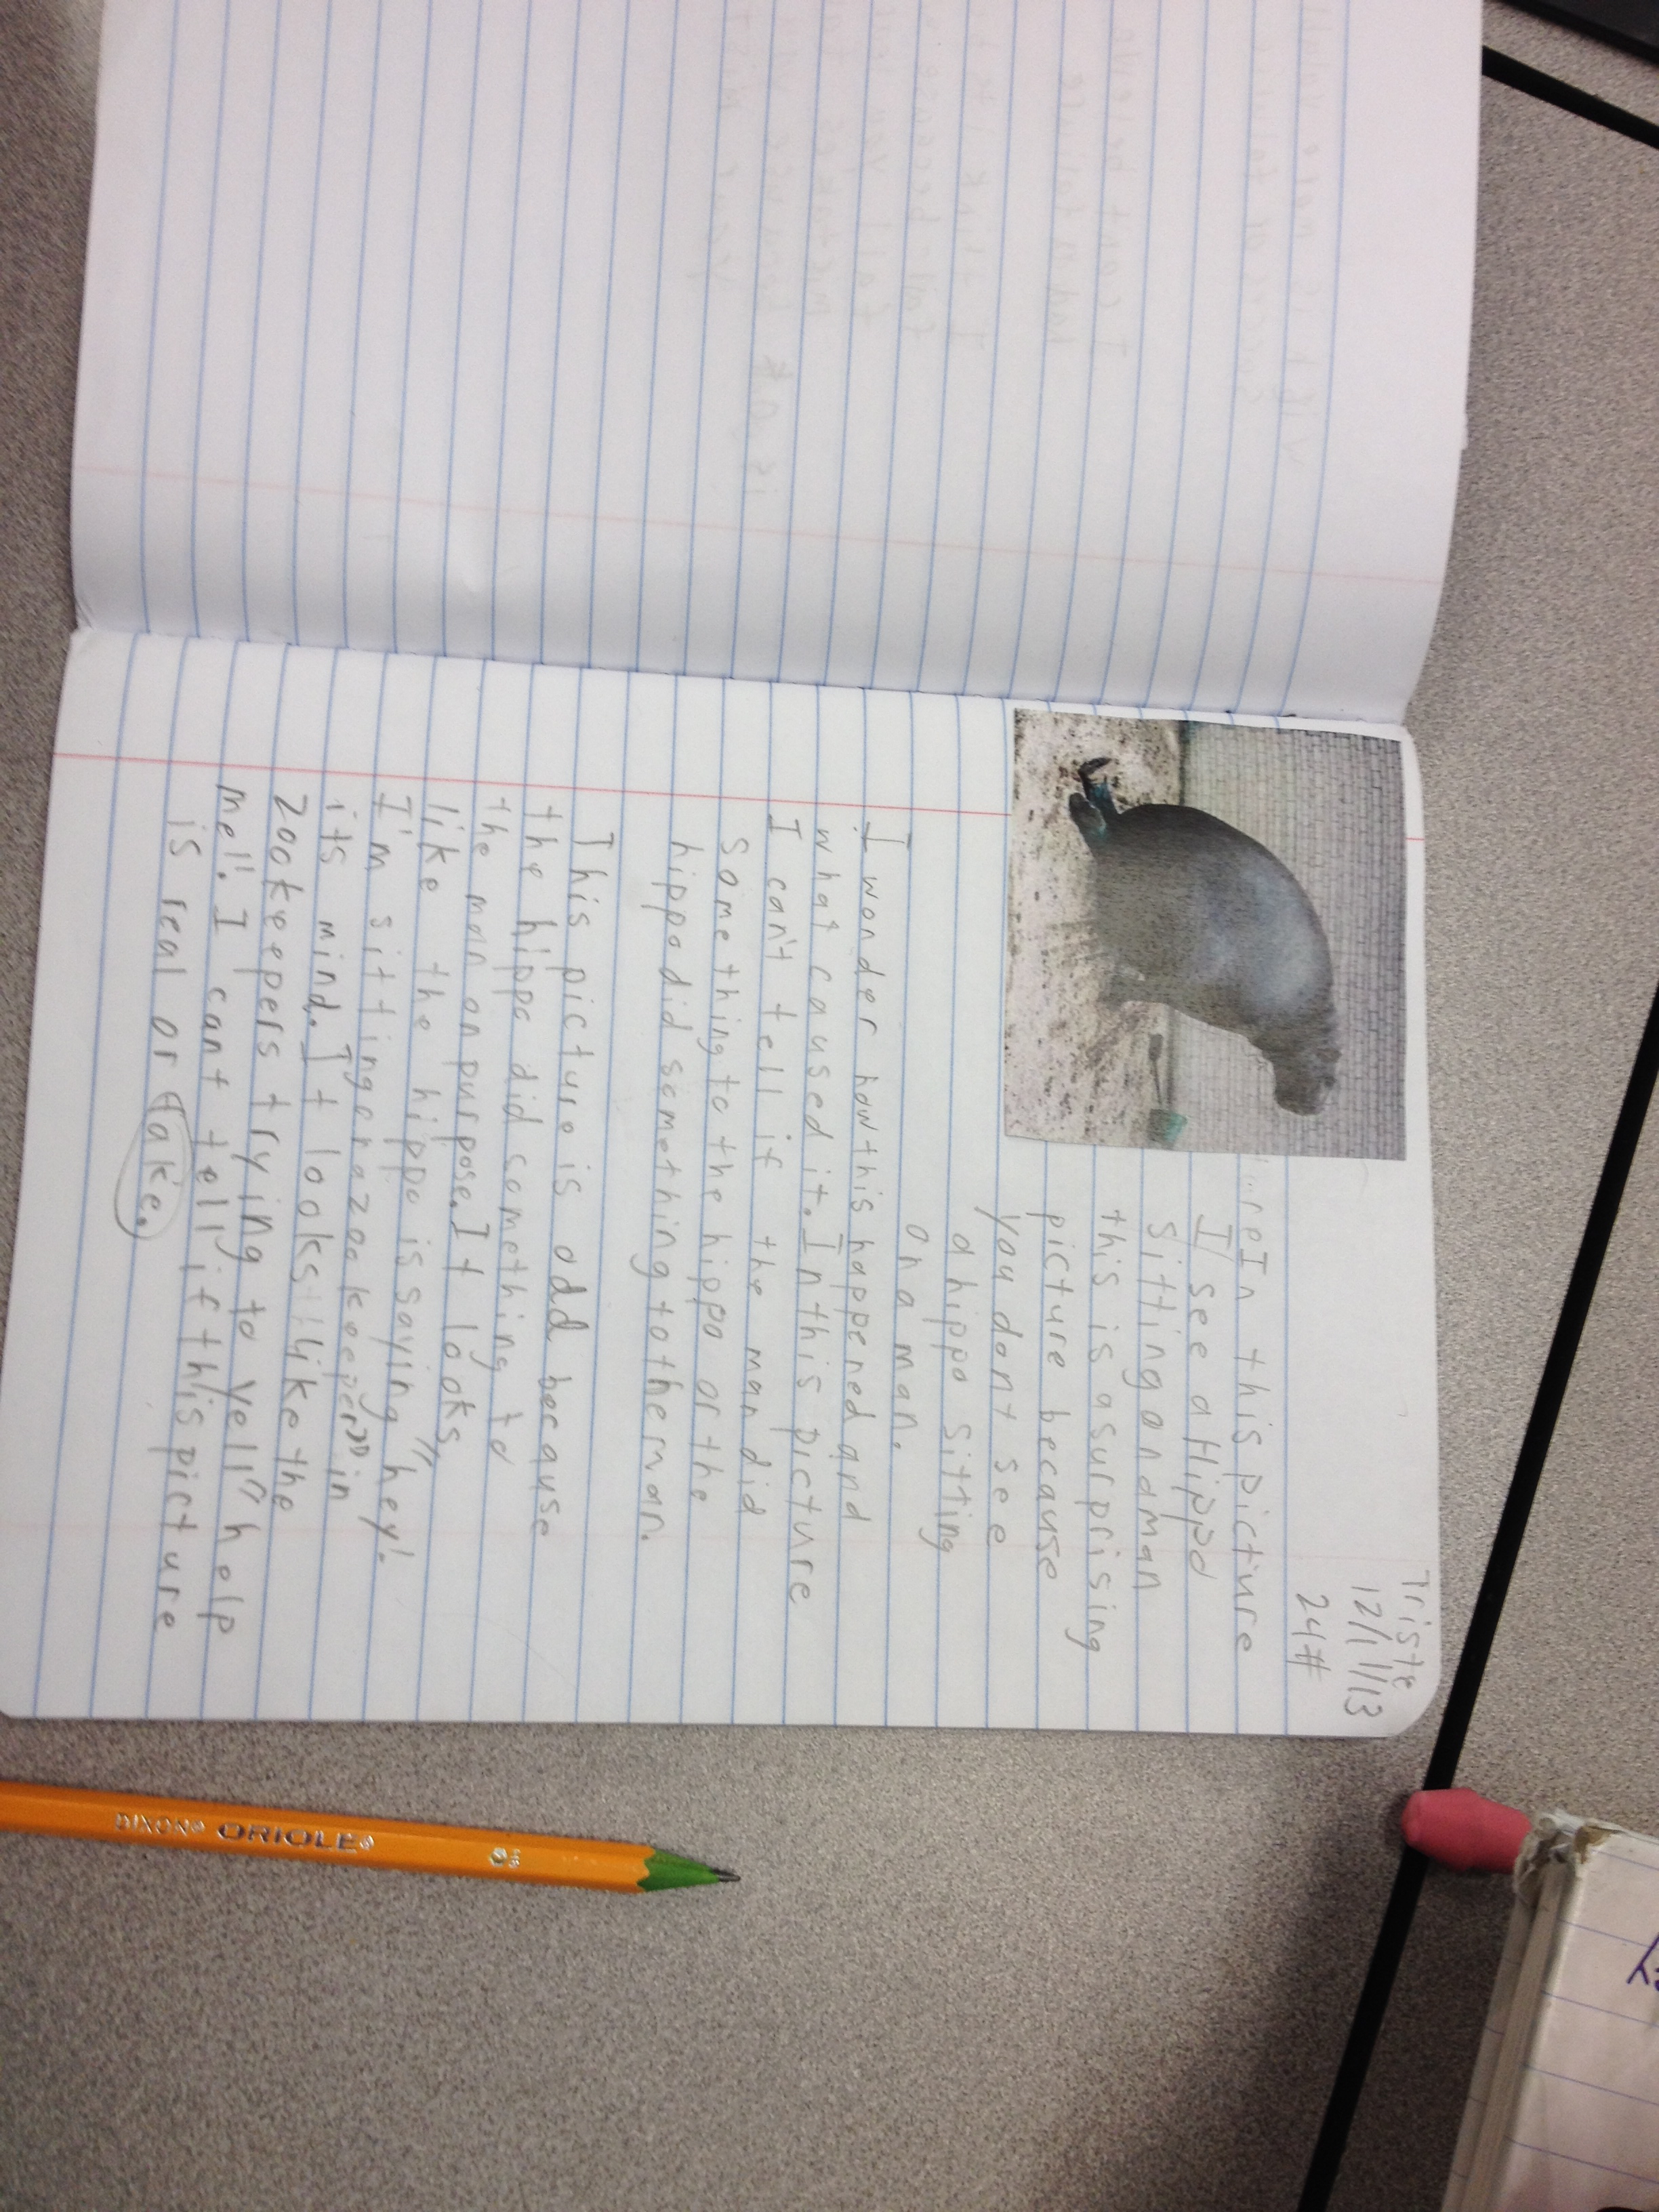 Triste
12/11/13
24#
In this picture
I see a Hippo
sitting on a man
this is a surprising
picture because
you dont see
a hippo sitting
on a man.
I wonder how this happened and
what caused it. In this picture
I can't tell if the man did
something to the hippo or the
hippo did something to the man.
This picture is odd because
the hippo did something to
the man on purpose. It looks
like the hippo is saying "hey!
I'm sitting on a zookeeper" in
its mind. It looks like the
zookeepers trying to yell "help
me!". I cant tell if this picture
is real or fake.
DIXON ORIOLE